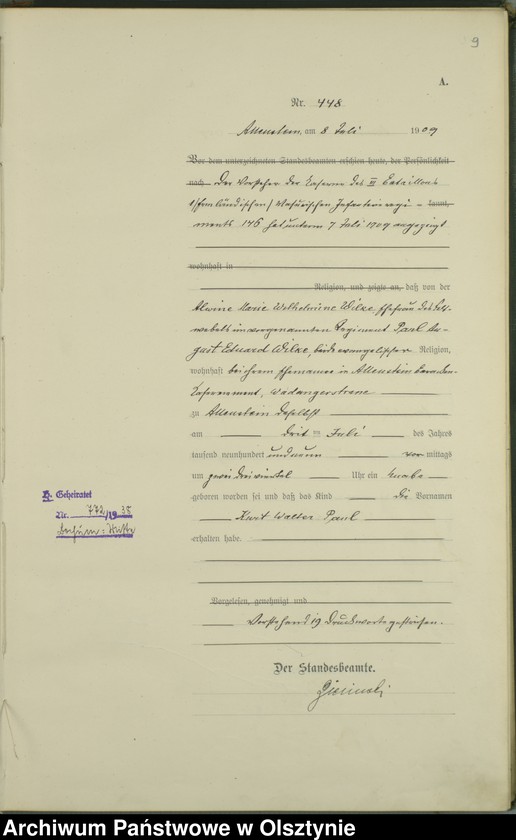 9
A.
Nr. 448
Allenstein, am 8 Juli 1909
Vor dem unterzeichneten Standesbeamten erschien heute, der Persönlichkeit
nach Der Vorsteher der Kaserne des III Bataillons
Masurischen Infanterieregi- kannt,
ments 146 hat unterm 7 Juli 1909 angezeigt
wohnhaft in
Religion, und zeigte an, daß von der
Alwine Marie Wilhelmine Wilke, Ehefrau des Feld-
webels im vorgenannten Regiment Paul Au-
gust Eduard Wilke, beide evangelischer Religion,
wohnhaft bei ihrem Ehemanne in Allenstein
Wadangerstrasse
zu Allenstein daselbst
am drit = Juli des Jahres
tausend neunhundert und neun vor mittags
um zwei dreiviertel Uhr ein Knabe
geboren worden sei und daß das Kind die Vornamen
Kurt Walter Paul
erhalten habe.
Vorgelesen, genehmigt und
Vorstehend 19 Druckworte gestrichen.
Der Standesbeamte.
Geheiratet
Nr. 772/1938
Bochum-Mitte
Archiwum Państwowe w Olsztynie